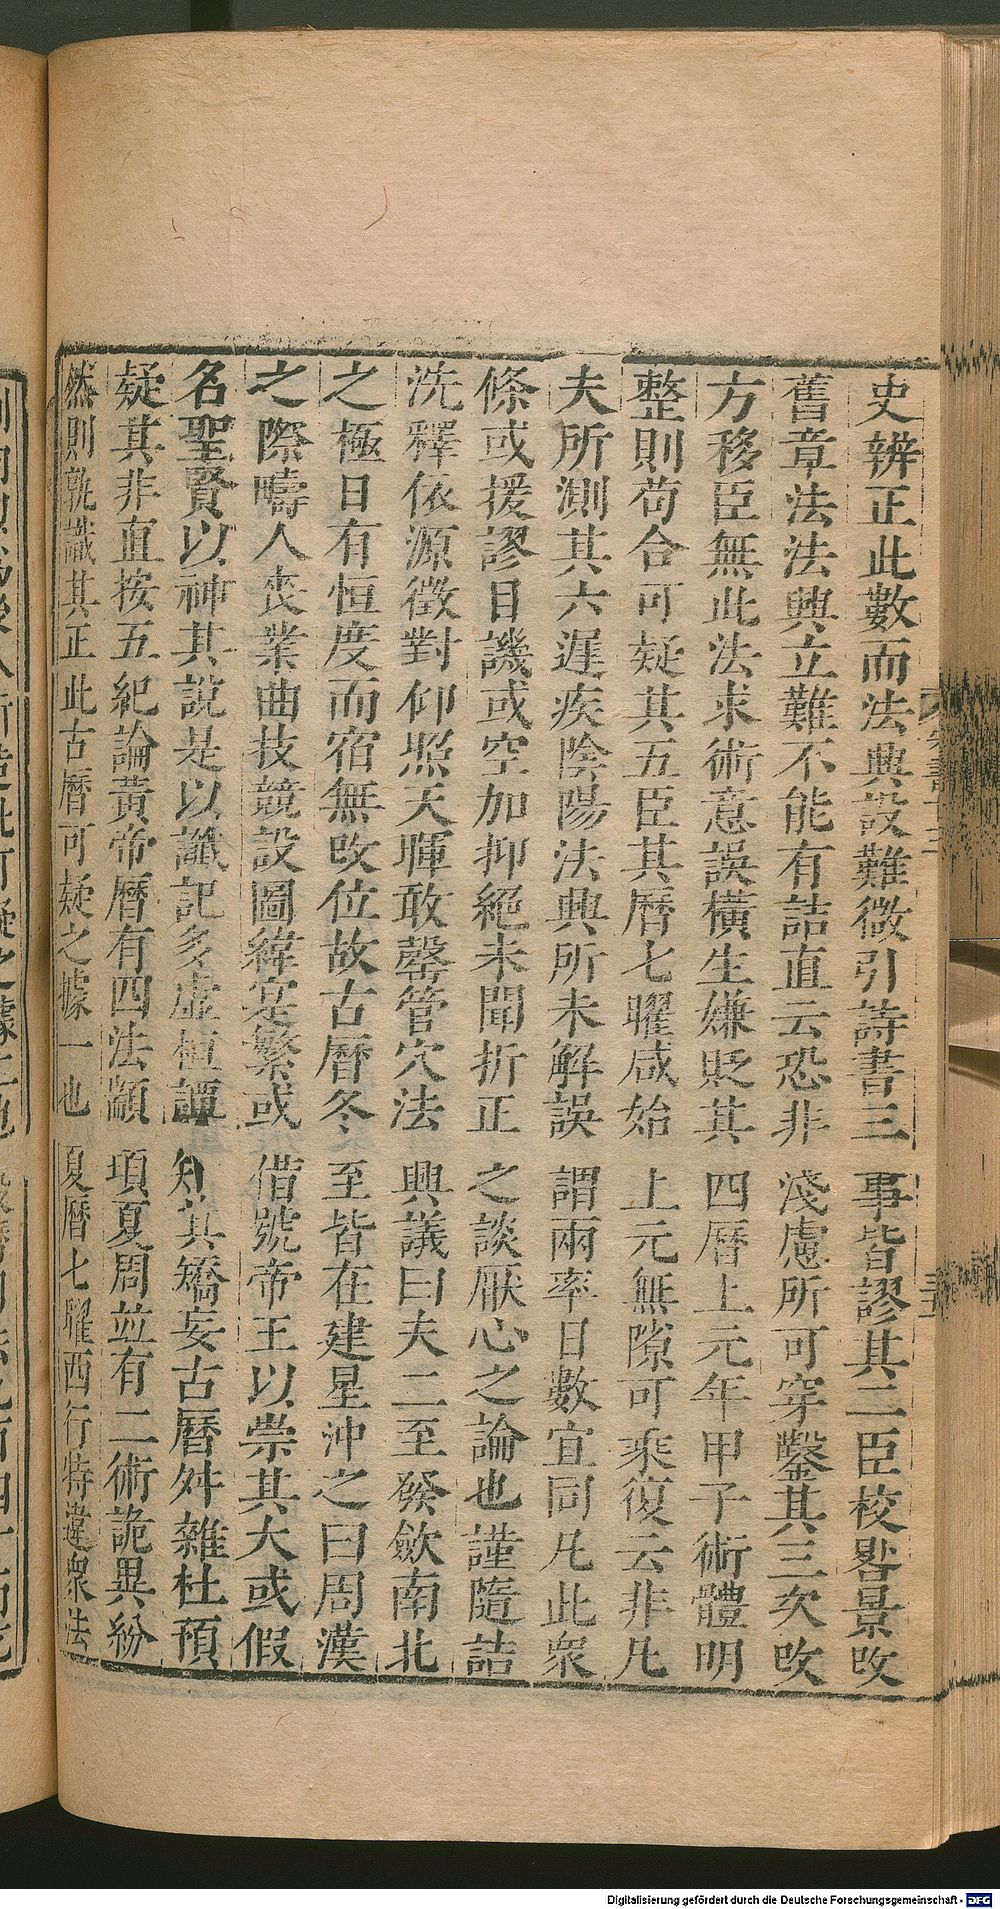 史辨正此數而法興設難徵引詩書三事皆謬其二臣校晷景改
舊章法法興立難不能有詰直云恐非淺慮所可穿鑿其三次改
方移臣無此法求術意誤橫生嫌貶其四曆上元年甲子術體明
整則苟合可疑其五臣其曆七曜咸始上元無隙可乘復云非凡
夫所測其六遲疾陰陽法興所未解誤謂兩率日數宜同凡此衆
條或援謬目譏或空加抑絕未聞折正之談厭心之論也謹隨詰
洗釋依源徵對仰照天暉敢罄管穴法興議曰夫二至發斂南北
之極日有恒度而宿無改位故古曆冬至皆在建星沖之曰周漢
之際疇人喪業曲技競設圖緯寔繁或借號帝王以崇其大或假
名聖賢以神其說是以讖記多虛桓譚知其矯妄古曆舛雜杜預
疑其非直按五紀論黃帝曆有四法顓項夏周並有二術詭異紛
然則孰識其正此古曆可疑之據一也夏曆七曜西行特違衆法
Digitalisierung gefördert durch die Deutsche Forschungsgemeinschaft - DFG